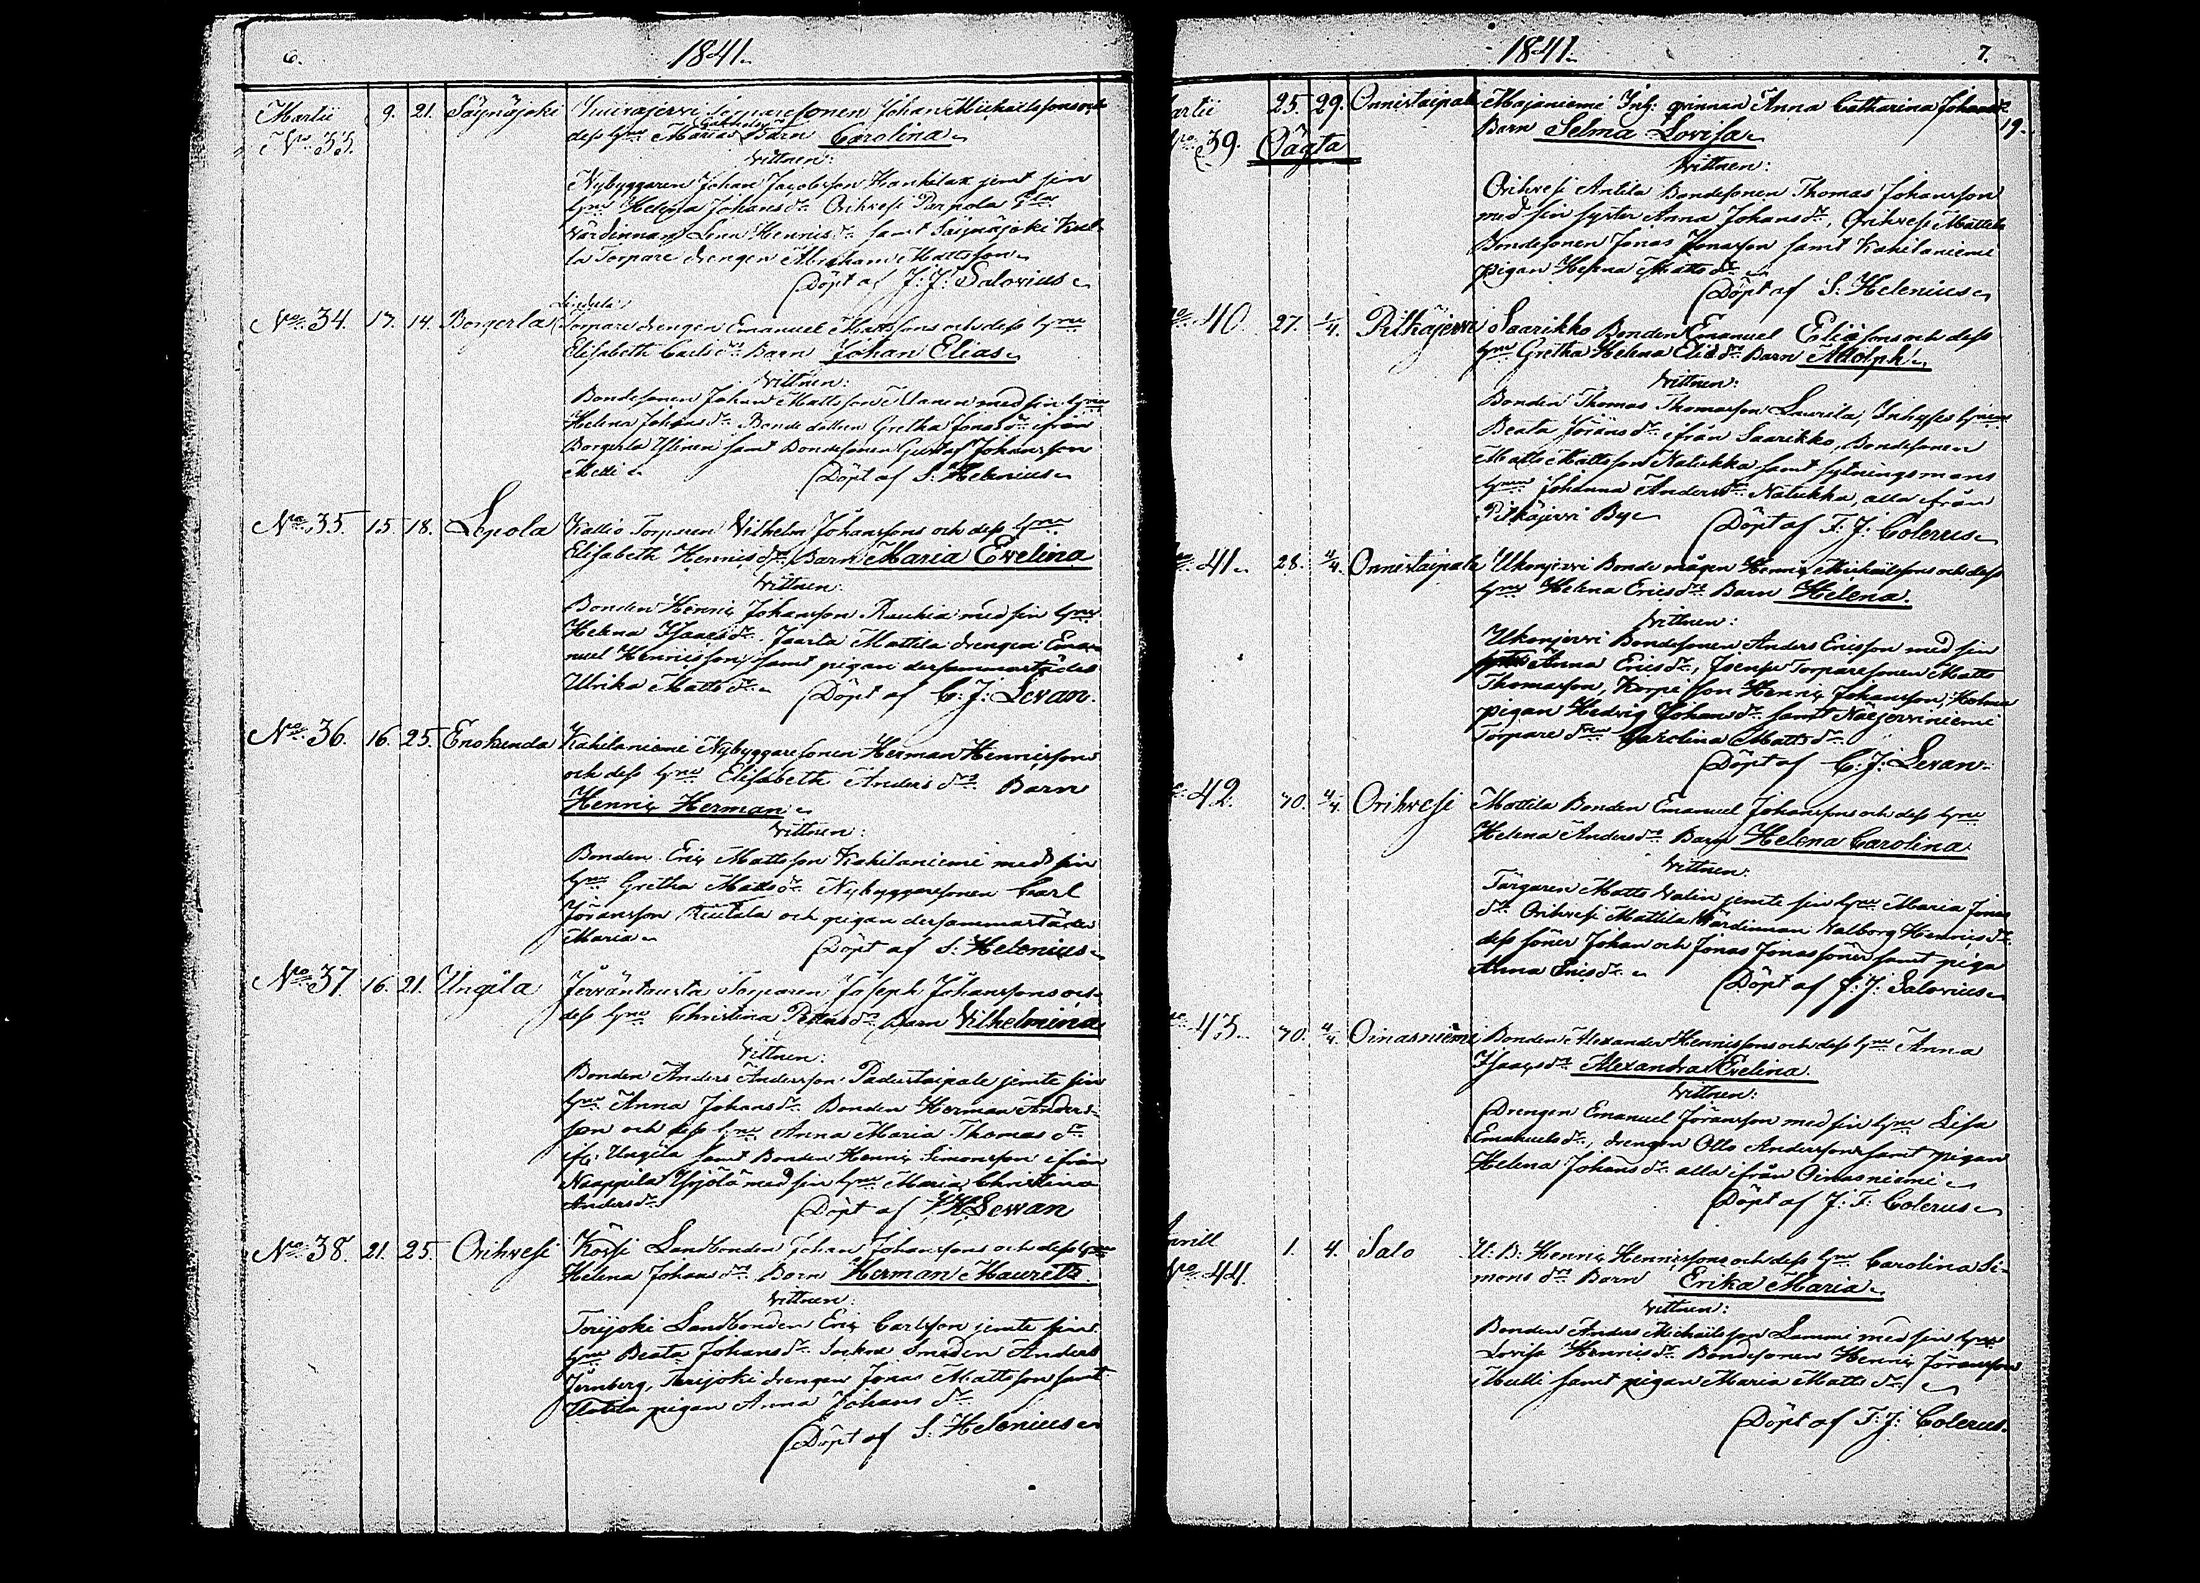 6. 1841.
Martii 9. 21. Säynäjoki Torparesonen Johan Michaelssons och
No. 33. dess hu Marias Barn Carolina
Vittnen:
Nybyggaren Johan Jacobsson Hankilax jemt sin
hu Helena Johansdr Orihvesi Parpola
värdinnan Lena Henricsdr samt Säynäjoki
Torpare drengen Abraham Mattsson
Döpt af J. J. Salovius
No. 34. 17. 14. Borgerla Torpare drengen Emanuel Mattssons och dess hu
Elisabeth Carlsdrs Barn Johan Elias
Vittnen:
Bondesonen Johan Mattsson med sin hu
Helena Johansdr Bonde dottren Gretha Jonasdr ifrån
Borgerla Ylinen samt Bondesonen Gustaf Johansson
Melli Döpt af S. Helenius
No. 35. 15. 18. Lepola Kallio Torparen Vilhelm Johanssons och dess hu
Elisabeth Henricsdrs Barn Maria Evelina
Vittnen:
Bonden Henric Johansson Ruskia med sin hu
Helena Isaacsdr. Jaarla Mattila drengen Ema-
nuel Henricsson samt pigan dersammastädes
Ulrika Mattsdr Döpt af C. J. Levan.
No. 36. 16. 25. Enokunda Kahilaniemi Nybyggaresonen Herman Henricssons
och dess hu Elisabeth Andersdrs Barn
Henric Herman
Vittnen:
Bonden Eric Mattsson Kahilaniemi med sin
hu Gretha Mattsdr Nybyggaresonen Carl
Jöransson och pigan dersammastädes
Maria Döpt af S. Helenius
No. 37. 16. 21. Ungila Jerväntausta Torparen Joseph Johanssons och
dess hu Christina Pettersdrs Barn Vilhelmina
Vittnen:
Bonden Anders Andersson Padustaipale jemte sin
hu Anna Johansdr Bonden Herman Anders-
son och dess hu Anna Maria Thomasdr
ifr. Ungila samt Bonden Henric Simonsson ifrån
Naappila Yrjölä med sin hu Maria Christina
Andersdr Döpt af Levan
No. 38. 21. 25. Orihvesi Körsi Landbonden Johan Johanssons och dess hu
Helena Johansdrs Barn Herman Mauritz
Vittnen:
Torijoki Landbonden Eric Carlsson jemte sin
hu Beata Johansdr Socken Smeden Anders
Jernberg, Torijoki drengen Jonas Mattsson samt
Uotila pigan Anna Johansdr
Döpt af S. Helenius
1841. 7.
Martii 25. 29. Onnistaipale Majaniemi Inh. qvinnan Anna Catharina Johansdrs
No. 39. Oägta Barn Selma Lovisa 19.
Vittnen:
Orihvesi Antila Bondesonen Thomas Johansson
med sin syster Anna Johansdr, Orihvesi Mattila
Bondesonen Jonas Jonasson samt Kahilaniemi
pigan Helena Mattsdr
Döpt af S. Helenius
No. 40. 27. 1/4. Pitkäjervi Saarikko Bonden Emanuel Eliæsons och dess
hu Gretha Helena Eliædrs Barn Adolph
Vittnen:
Bonden Thomas Thomasson Laurila, Inhyses hu
Beata Jöransdr ifrån Saarikko, Bondesonen
Matts Mattsson Natukka samt sytningsmans
hu Johanna Andersdr Natukka, alla ifrån
Pitkäjervi By Döpt af F. J. Colerus
No. 41. 28. 4/4. Onnistaipale Ukonjervi Bonde mågen Henric Michaelssons och dess
hu Helena Ericsdrs Barn Helena.
Vittnen:
Ukonjervi Bondesonen Anders Ericsson med sin
Anna Ericsdr, Torparesonen Matts
Thomasson, Korpi son Henric Johansson, Kolma
pigan Hedvig Johansdr samt Näejerviniemi
Torpare Carolina Mattsdr
Döpt af C. J. Levan.
No. 42. 30. 4/4. Orihvesi Mattila Bonden Emanuel Johanssons och dess hu
Helena Andersdrs Barn Helena Carolina
Vittnen:
Färgaren Matts Valin jemte sin hu Maria Jonas
dr Orihvesi Mattila Värdinnan Valborg Henricsdr
dess söner Johan och Jonas Jonassöner samt piga
Anna Ericsdr Döpt af J. J. Salovius
No. 43. 30. 4/4. Oinasniemi Bonden Alexander Henricssons och dess hu Anna
Isaacsdrs Alexandra Evelina.
Vittnen:
Drengen Emanuel Jöransson med sin hu Lisa
Emanuelsdr, drengen Otto Andersson samt pigan
Helena Johansdr alla ifrån Oinasniemi
Döpt af F. J. Colerus
Aprill 1. 4. Salo U. B. Henric Henricssons och dess hu Carolina Si-
No. 44. monsdrs Barn Erika Maria
Vittnen:
Bonden Anders Michelsson Lammi med sin hu
Lovisa Henricsdr Bondesonen Henric Jöransson
Mulli samt pigan Maria Mattsdr
Döpt af F. J. Colerus.